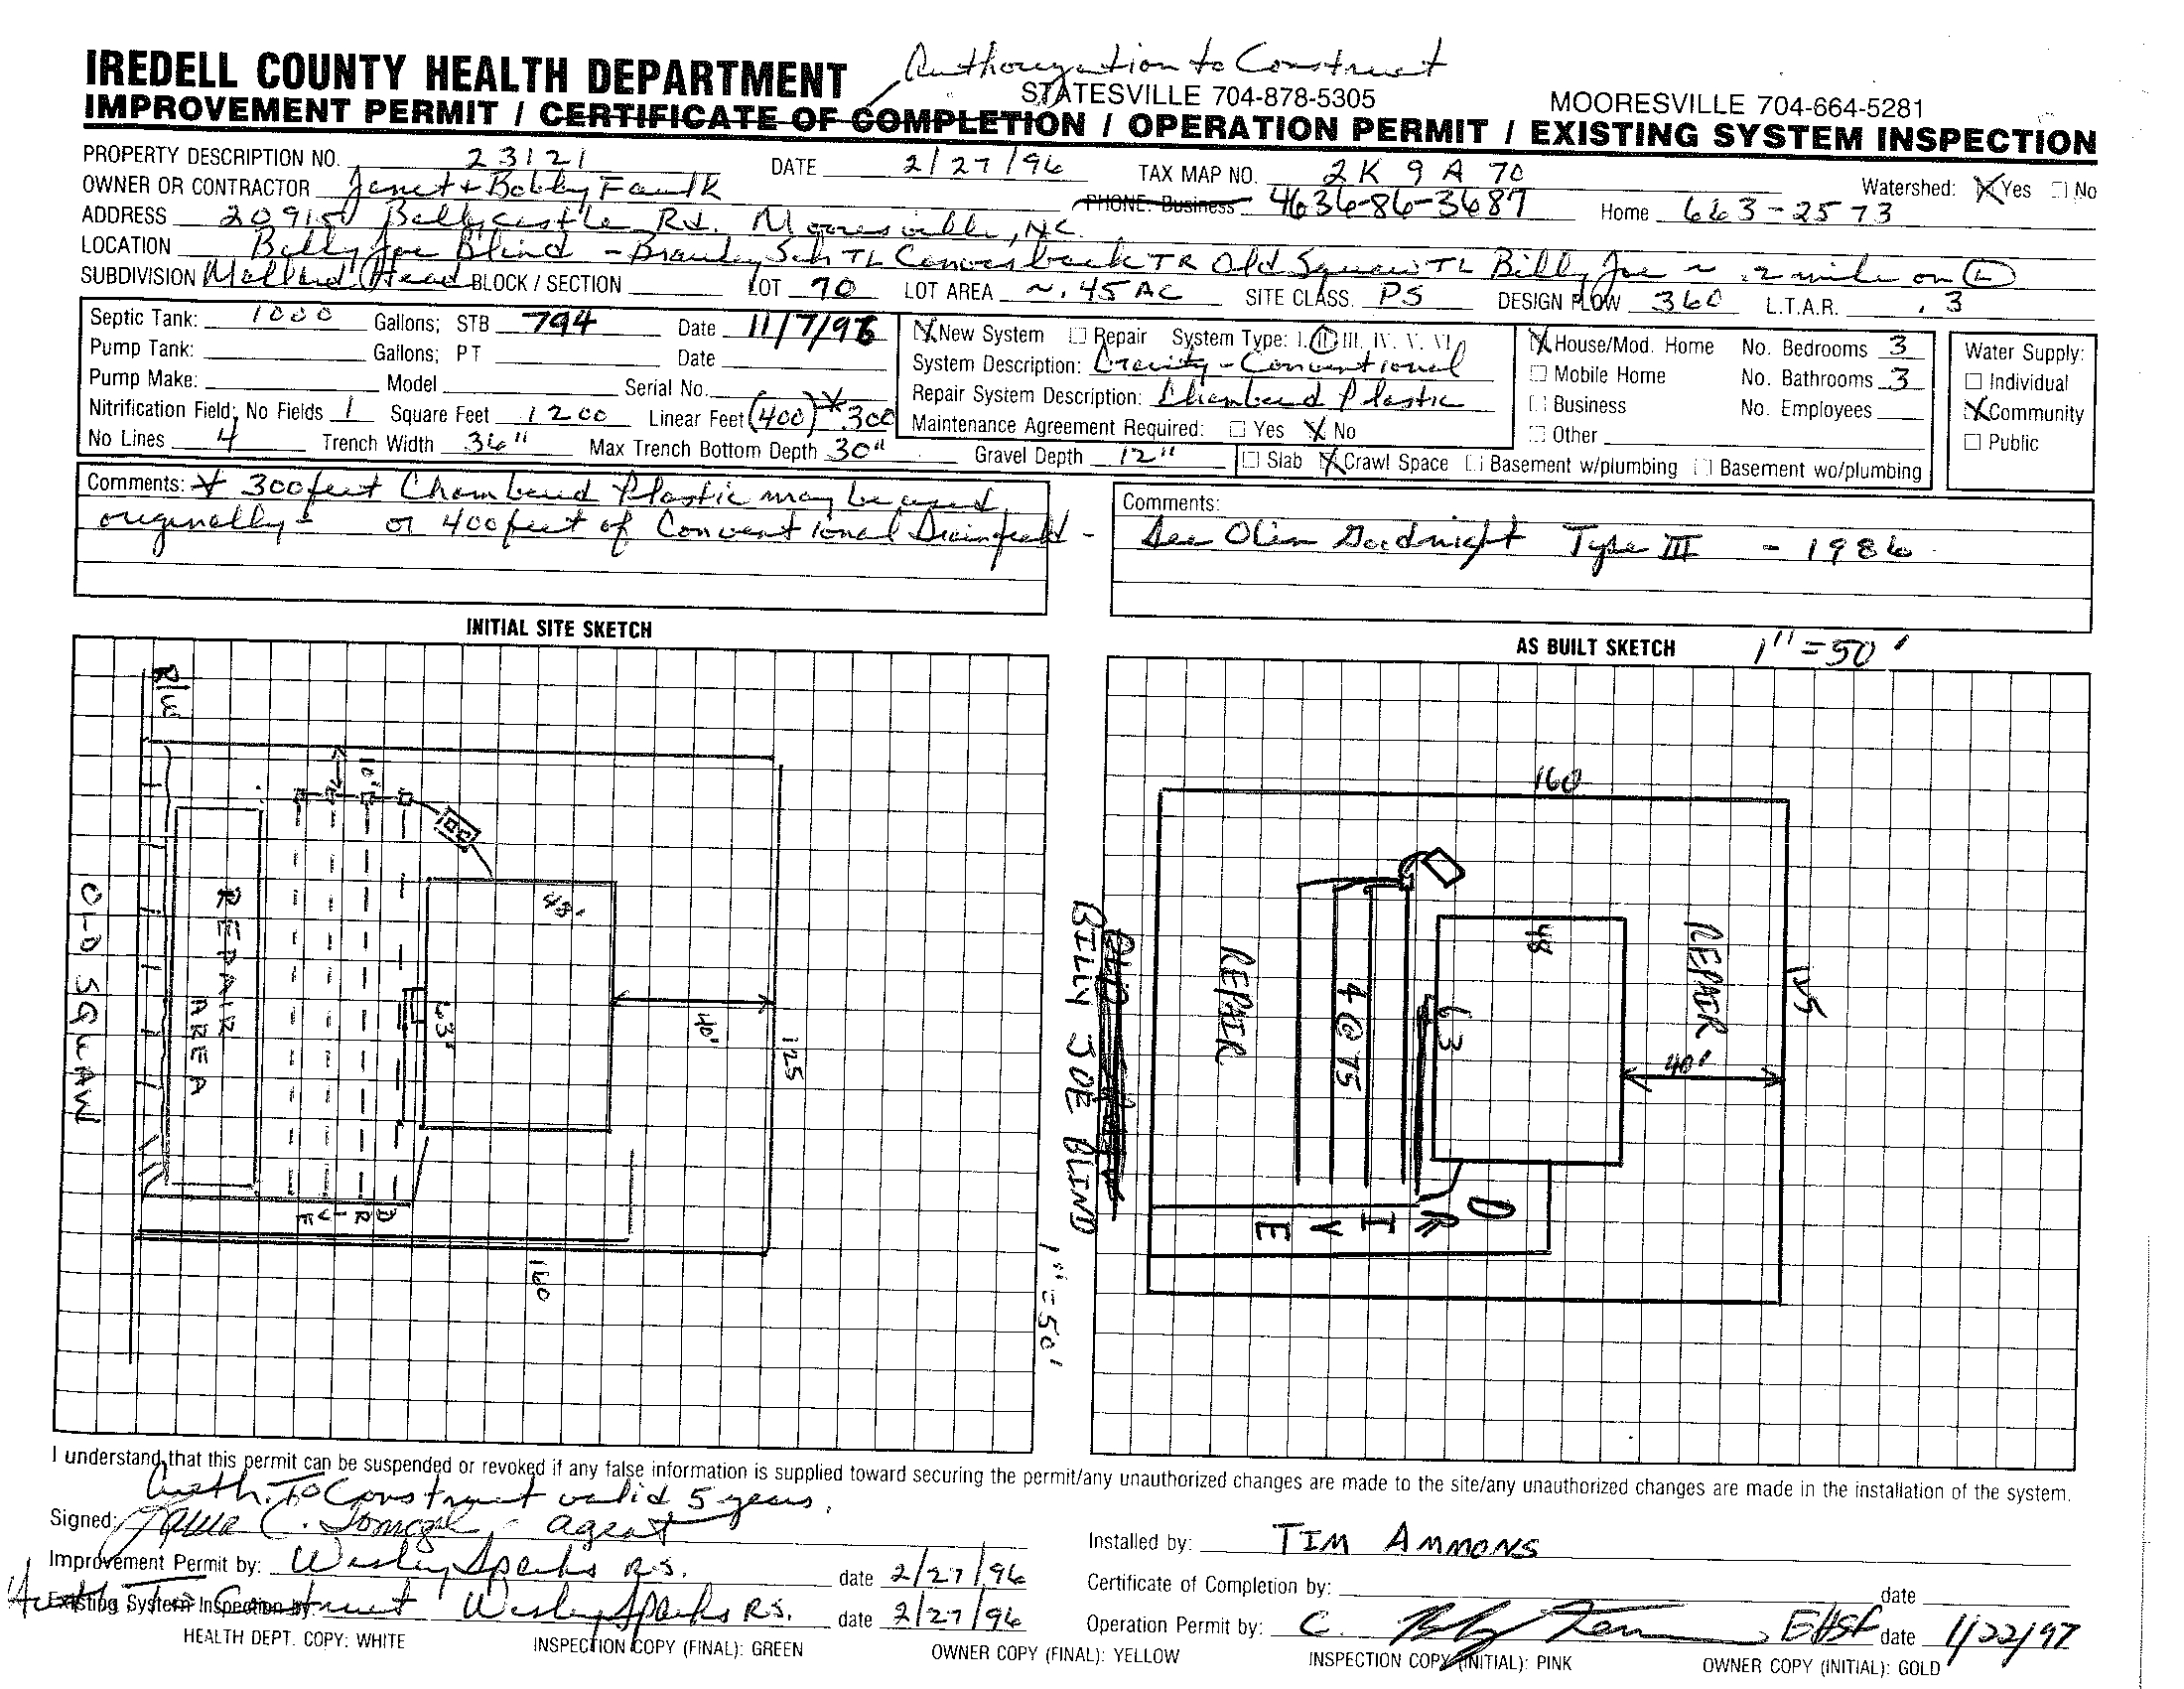 Authorization to Construct
IREDELL COUNTY HEALTH DEPARTMENT STATESVILLE 704-878-5305 MOORESVILLE 704-664-5281
IMPROVEMENT PERMIT / CERTIFICATE OF COMPLETION / OPERATION PERMIT / EXISTING SYSTEM INSPECTION
PROPERTY DESCRIPTION NO. 23121 DATE 2/27/96 TAX MAP NO. 2K 9 A 70 Watershed: X Yes No
OWNER OR CONTRACTOR Janet + Bobby Faulk PHONE: Business 4636-86-3687 Home 663-2573
ADDRESS 20915 Ballycastle Rd. Mooresville, NC.
LOCATION Billy Joe Blind - Brawley Sch TL Canvasback TR Old Squaw TL Billy Joe ~ .2 mile on L
SUBDIVISION Mallard Head BLOCK / SECTION LOT 70 LOT AREA ~.45 AC SITE CLASS. PS DESIGN FLOW 360 L.T.A.R. .3
Septic Tank: 1000 Gallons; STB 794 Date 11/7/96
Pump Tank: Gallons; PT Date
Pump Make: Model Serial No.
Nitrification Field; No Fields 1 Square Feet 1200 Linear Feet (400) * 300
No Lines 4 Trench Width 36" Max Trench Bottom Depth 30" Gravel Depth 12"
X New System Repair System Type: I. II III. IV. V. VI
System Description: Gravity - Conventional
Repair System Description: Chambered Plastic
Maintenance Agreement Required: Yes X No
X House/Mod. Home No. Bedrooms 3
Mobile Home No. Bathrooms 3
Business No. Employees
Other
Slab X Crawl Space Basement w/plumbing Basement wo/plumbing
Water Supply:
Individual
X Community
Public
Comments: * 300 feet Chambered Plastic may be used
originally - or 400 feet of Conventional Drainfield -
Comments:
See Olin Goodnight Type III - 1986
INITIAL SITE SKETCH
R/W
10'
48'
REPAIR
AREA
63'
40'
125
OLD SQUAW
DRIVE
160
1" = 50'
AS BUILT SKETCH 1" = 50'
160
BILLY JOE BLIND
REPAIR
4 @ 75
48
63
REPAIR
125
40'
DRIVE
I understand that this permit can be suspended or revoked if any false information is supplied toward securing the permit/any unauthorized changes are made to the site/any unauthorized changes are made in the installation of the system.
Auth. To Construct valid 5 years.
Signed: agent
Improvement Permit by: Wesley Sparks R.S. date 2/27/96
Auth. To Construct
Existing System Inspection by: Wesley Sparks R.S. date 2/27/96
Installed by: TIM AMMONS
Certificate of Completion by: date
Operation Permit by: C. EHSP date 1/22/97
HEALTH DEPT. COPY: WHITE INSPECTION COPY (FINAL): GREEN OWNER COPY (FINAL): YELLOW INSPECTION COPY (INITIAL): PINK OWNER COPY (INITIAL): GOLD